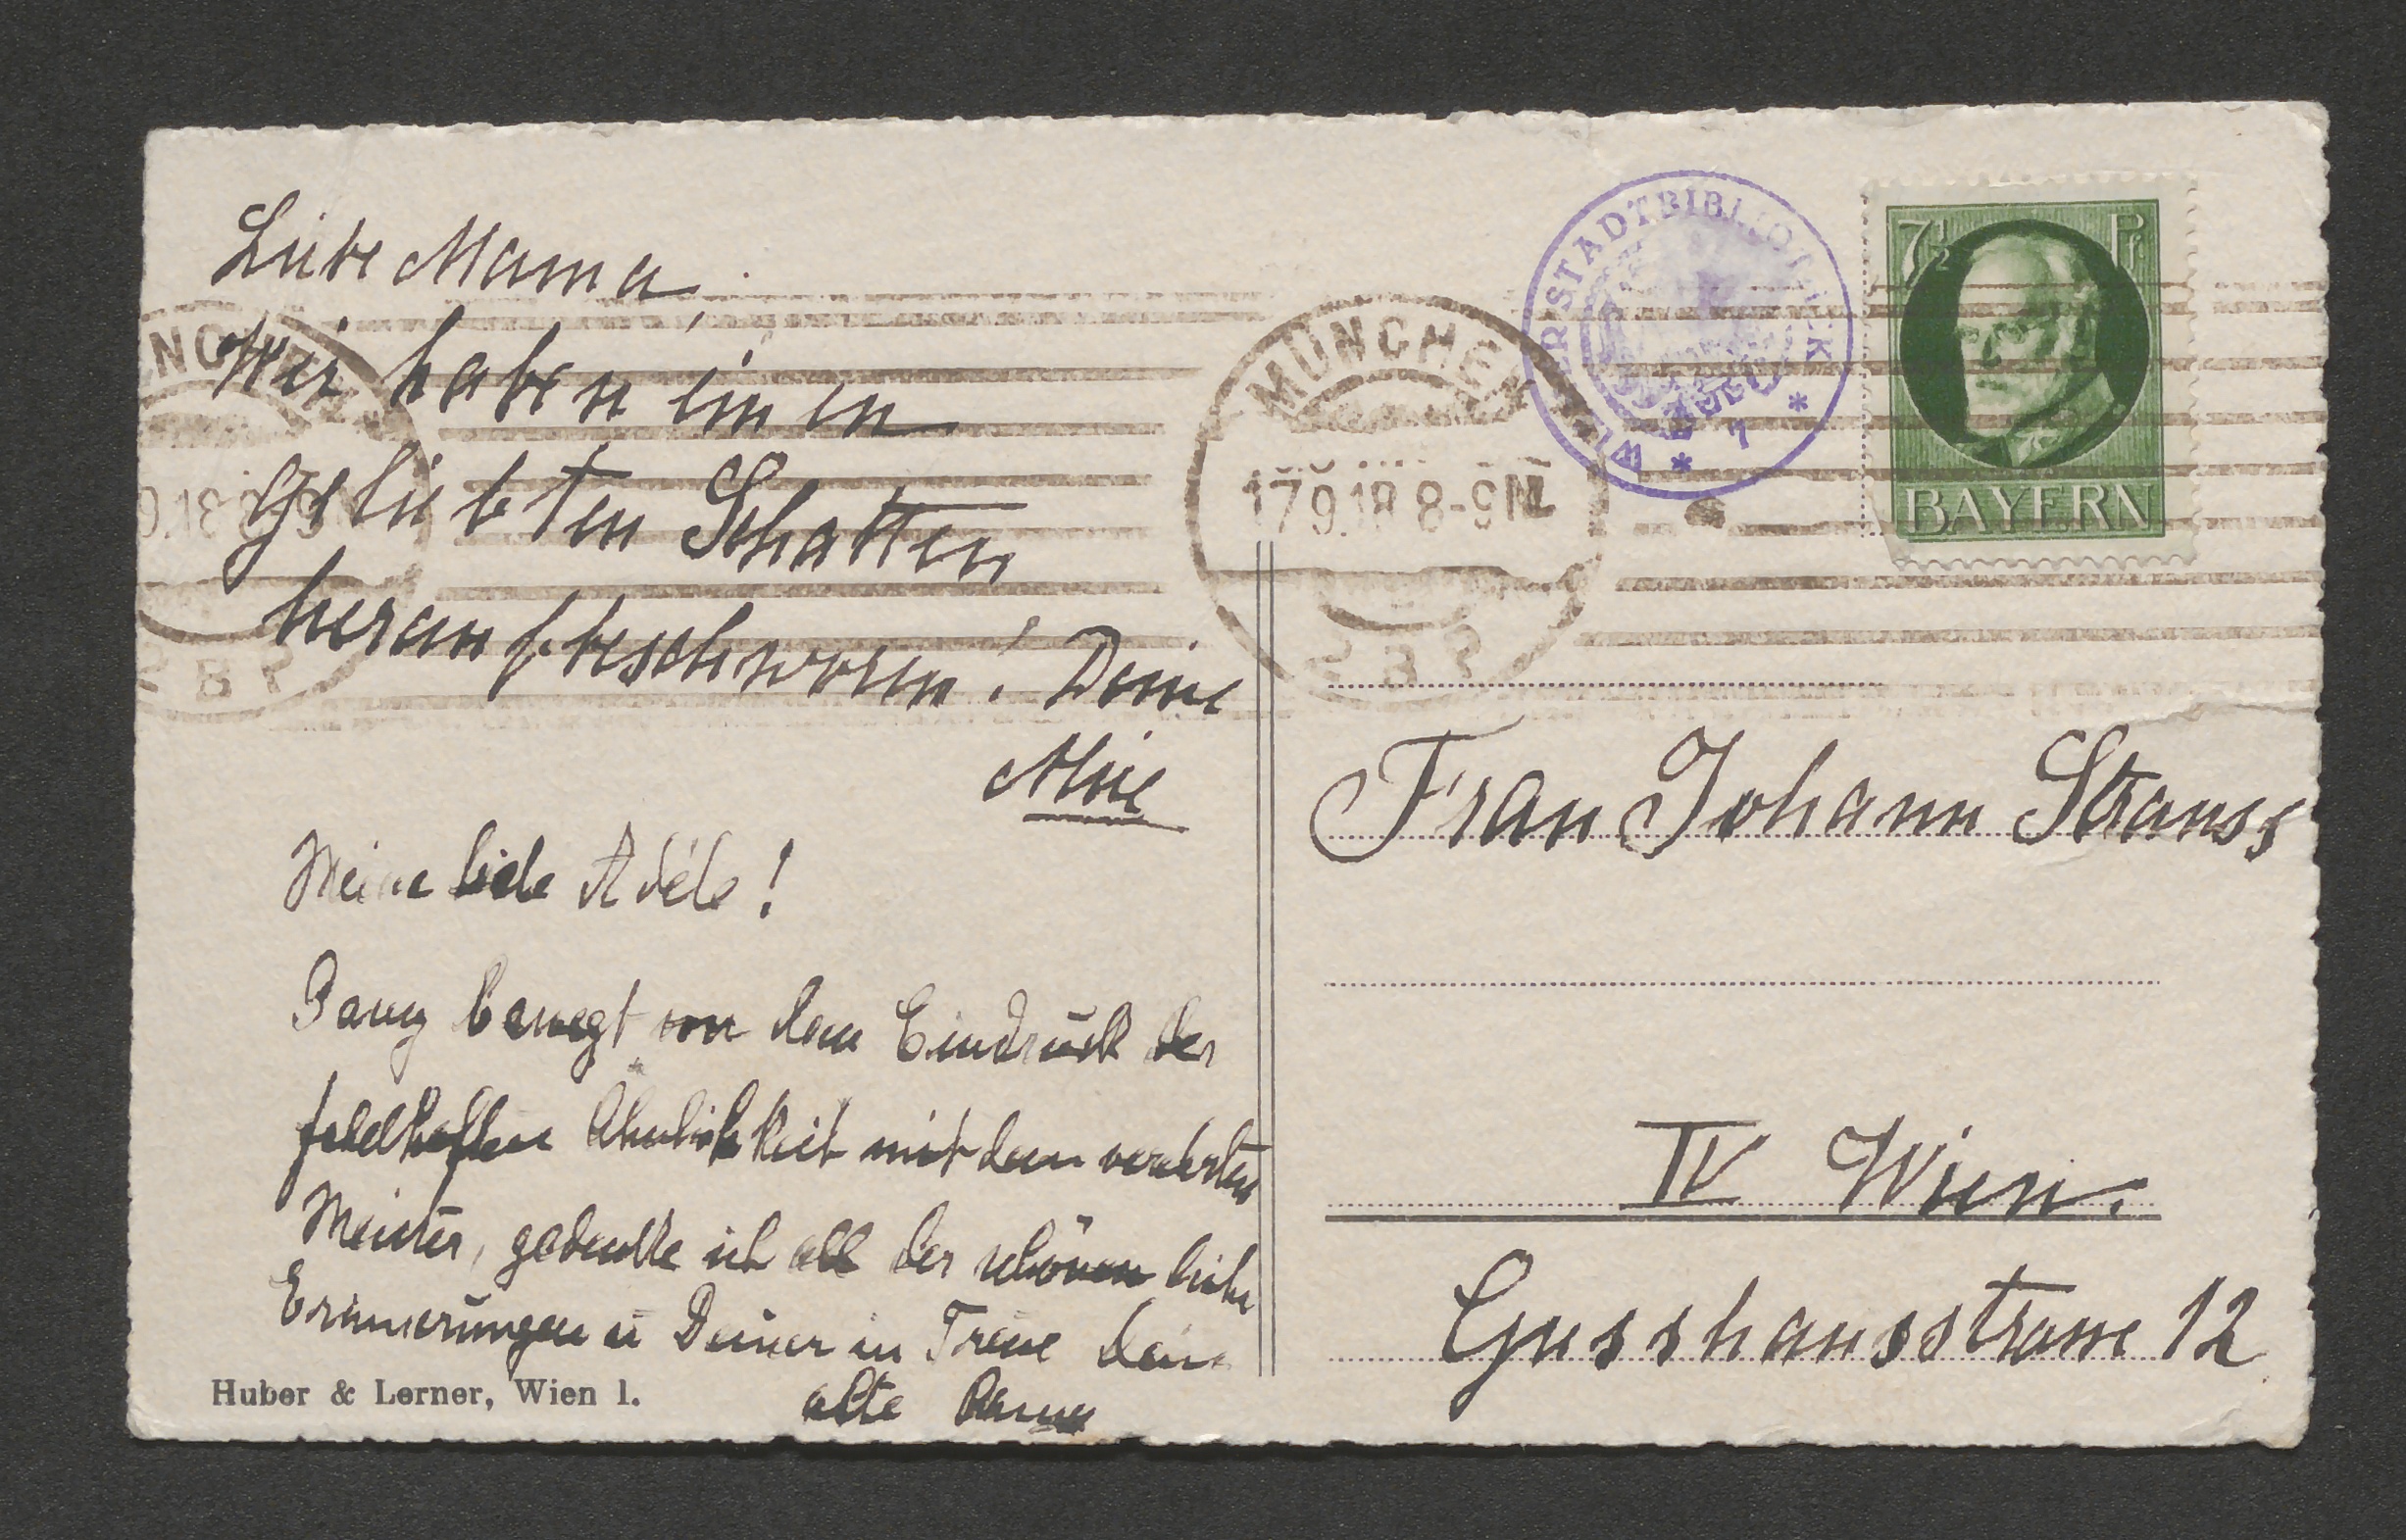 Liebe Mama
Wir haben einen
geliebten Schatten
heraufbeschworen! Deine
Alice
Meine liebe Adéle!
Ganz bewegt von dem Eindruck der
fabelhaften Ähnlichkeit mit dem verehrten
Meister, gedenke ich all der schönen lieben
Erinnerungen u Deiner in Treue deine
alte
Huber & Lerner, Wien 1.
WIENER STADTBIBLIOTHEK
7½ Pf
BAYERN
MÜNCHEN
17.9.18 8-9 N
Frau Johann Strauss
IV Wien.
Gusshausstrasse 12